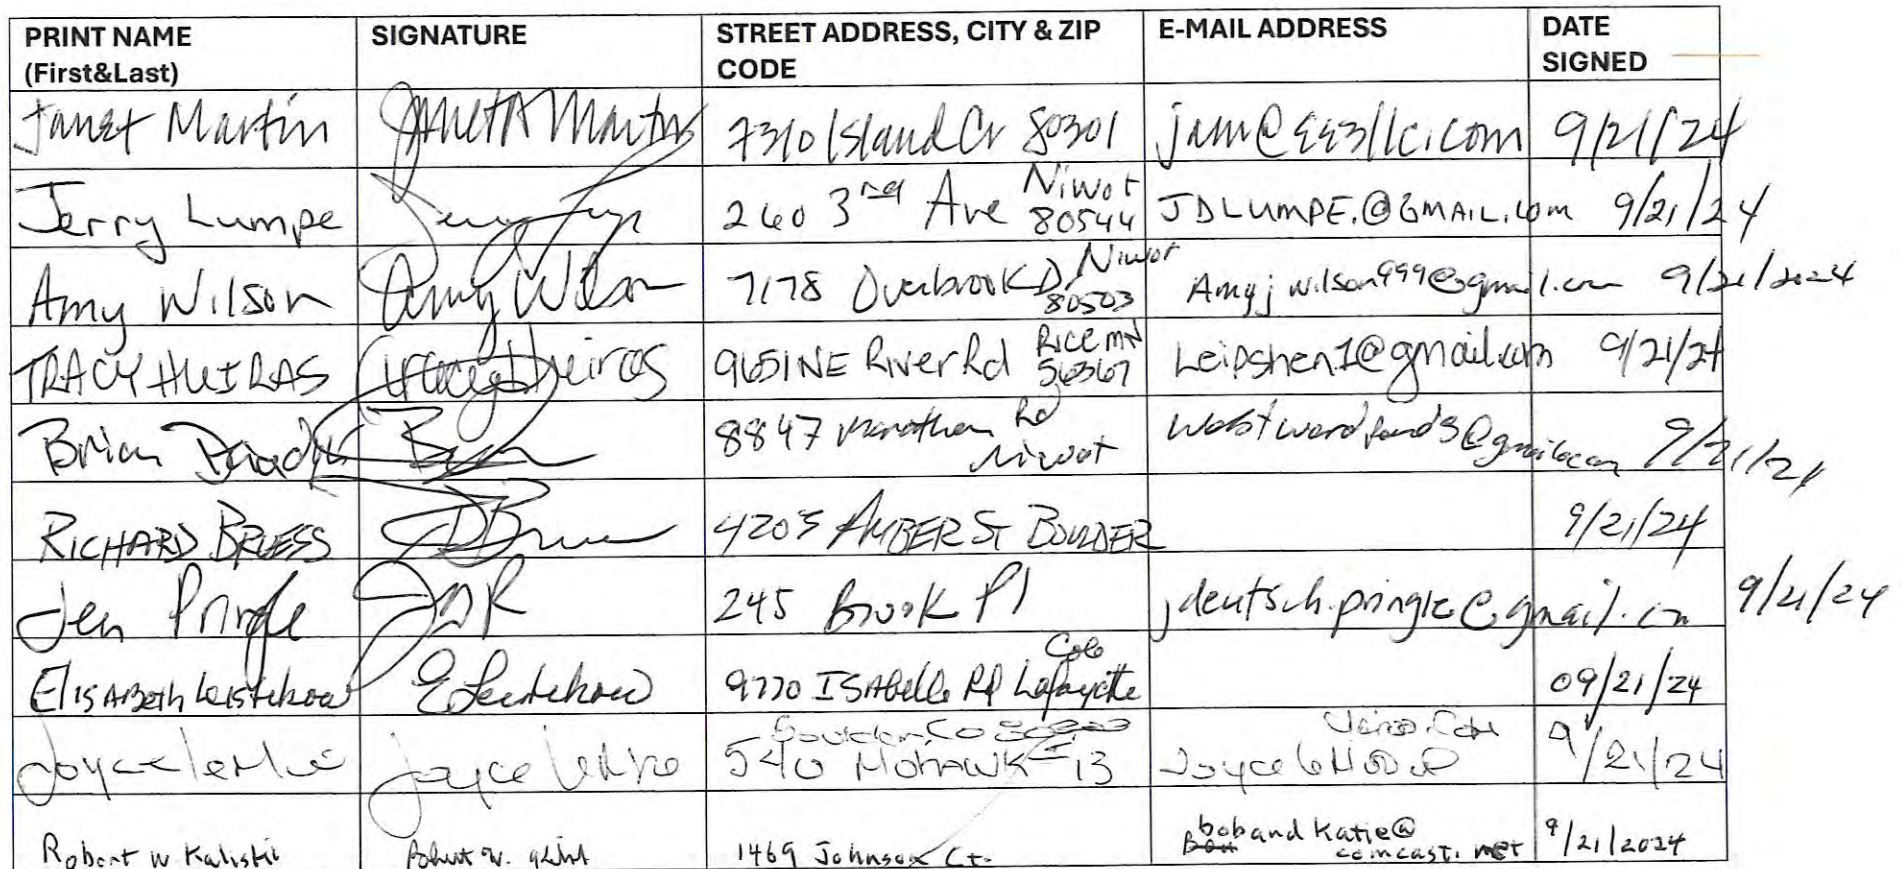 PRINT NAME (First&Last) SIGNATURE STREET ADDRESS, CITY & ZIP CODE E-MAIL ADDRESS DATE SIGNED
Janet Martin Janet A Martin 7310 Island Cr 80301 9/21/24
Jerry Lumpe 260 3rd Ave Niwot 80544 JDLUMPE.@GMAIL.com 9/21/24
Amy Wilson Amy Wilson 7178 Overbrook Dr Niwot 80503 Amyjwilson999@gmail.com 9/21/2024
TRACY HUIRAS Tracy Huiras 9651 NE River Rd Rice MN 56367 Leipshen1@gmail.com 9/21/24
Brian 8847 Marathon Rd Niwot 9/21/24
RICHARD BRUESS 4205 AMBER ST BOULDER 9/21/24
Jen Pringle 245 Brook Pl jdeutsch.pringle@gmail.cm 9/21/24
Elisabeth Leistikow E Leistikow 9770 ISAbelle Rd Lafayette Colo 09/21/24
Joyce Joyce 540 Mohawk 13 Boulder, Co 9/21/24
Robert W 1469 Johnson Ct. bobandkatie@comcast.net 9/21/2024